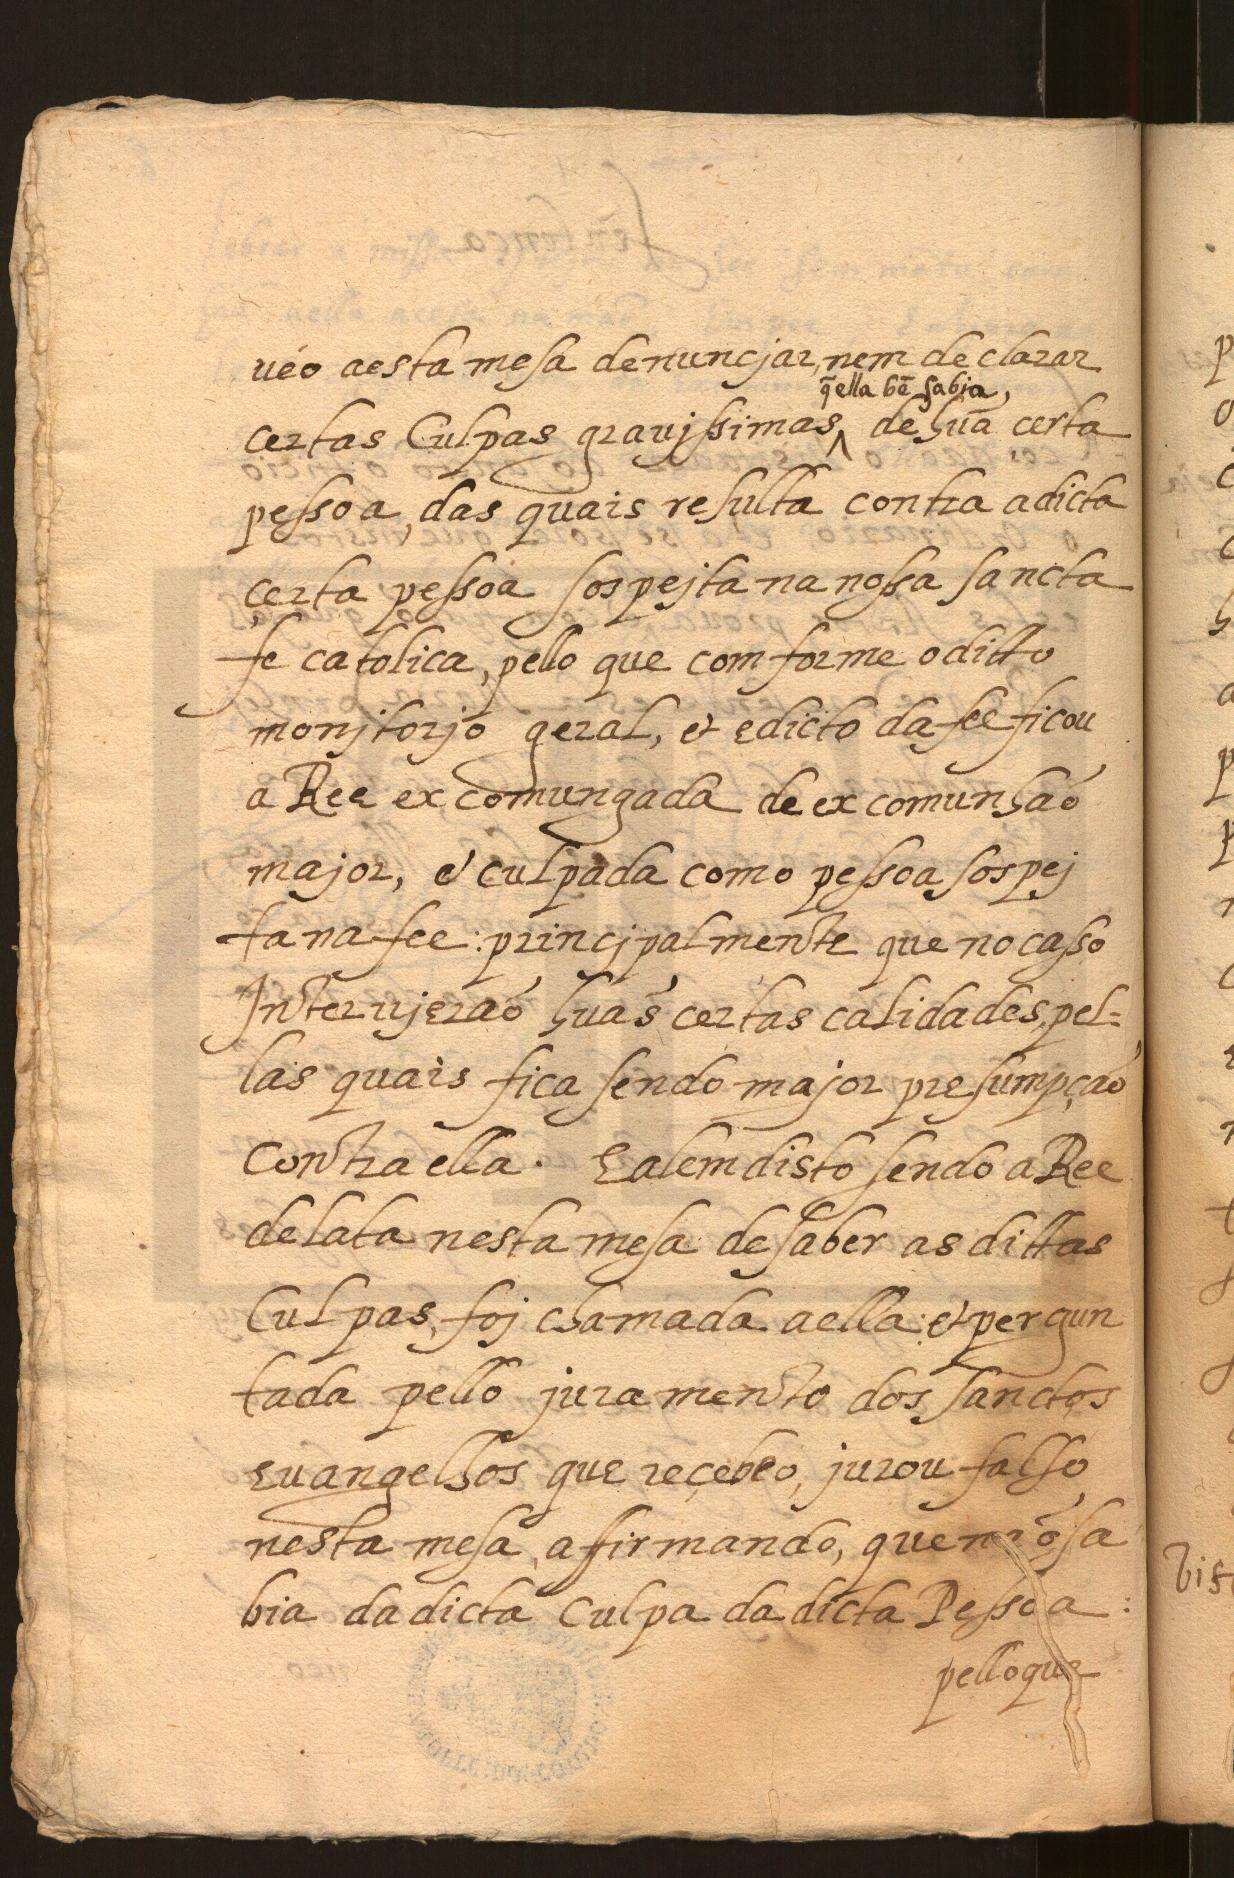 uéo aesta mesa denuncjar, nem declarar
q̃ ella bẽ sabia,
certas Culpas grauissimas, de hũa certa
pessoa, das quais resulta contra a dicta
çerta pessoa sospejta na nossa sancta
fe catolica, pello que comforme o dicto
monjtorjo geral, et edicto da fee ficou
a Ree excomungada de excomunhaó
major, e culpada como pessoa sospej
ta na fee: principalmente que no casso
Interujeraó huás certas calidades, pel=
las quais fica sendo major presumpçaó
contra ella. E alem disto sendo a Ree
delata nesta mesa de saber as dittas
Culpas, foj chamada a ella: et pergun
tada pello juramento dos sanctos
Euangelhos que reçebeo, jurou falso
nesta mesa, afirmando, que naó sa
bia da dicta Culpa da dicta Pessoa:
pello que